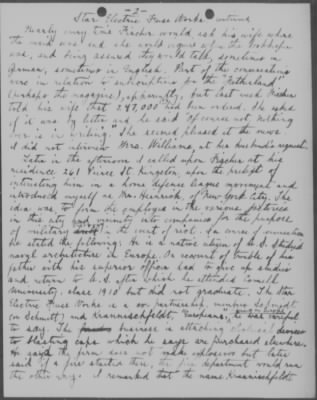 -2-
Star Electric Fuse Works
Nearly every time Fischer would ask his wife where
the maid was and she would inquire when the
and, and being assured they would talk, sometimes in
German, sometimes in English. Part of the conversation
was in relation to subscription for the "Fatherland"
(perhaps the magazine), apparently, but last week Fischer
told his wife that 247,000 had been ordered. She asked
if it was by letter and he said "of course not, nothing
ever is in writing." She seemed pleased at the news.
I did not interview Mrs. Williams, at her husband's request.
Later in the afternoon I called upon Fischer at his
residence 261 Pierce St. Kingston, upon the pretext of
interesting him in a home defense league movement and
introduced myself as Mr. of New York City. The
idea was to form the employees in the various plants
in this city and vicinity into companies for the purpose
of military in the event of riot. In course of conversation
he stated the following: He is a native citizen of U.S. Studied
naval architecture in Europe. On account of trouble of his
father with his superior officer had to give up studies
and return to U.S. after which he attended Cornell
University, class 1910 but did not graduate. The Star
Electric Fuse Works is a co-partnership,
(or Schmitt) and Krannischfeldt, Europeans, he was careful
to say. The business is attaching electrical devices
to blasting caps which he says are purchased elsewhere.
He says the firm does not make explosives but later
said if a fire started there, the fire department would run
the other way. I remarked that the name Krannischfeldt